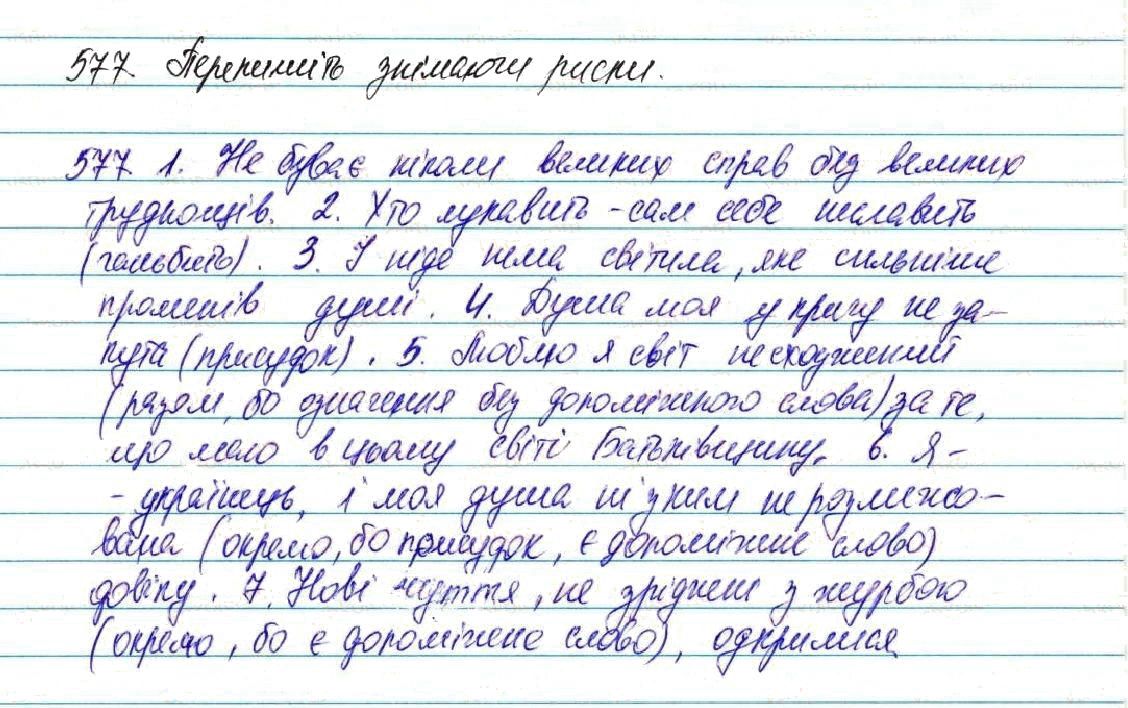 577. Перепишіть знімаючи риски.
577. 1. Не буває ніколи великих справ без великих
труднощів. 2. Хто лукавить - сам себе неславить
(ганьбить). 3. І ніде нема світила, яке сильніше
променів душі. 4. Душа моя у кригу не за-
кута (присудок). 5. Люблю я світ несходжений
(разом, бо означення без допоміжного слова) за те,
що маю в цьому світі Батьківщину. 6. Я -
- українець, і моя душа ні з ким не розмежо-
вана (окремо, бо присудок, є допоміжне слово)
довіку. 7. Нові чуття, не зріднені з журбою
(окремо, бо є допоміжне слово), одкрилися